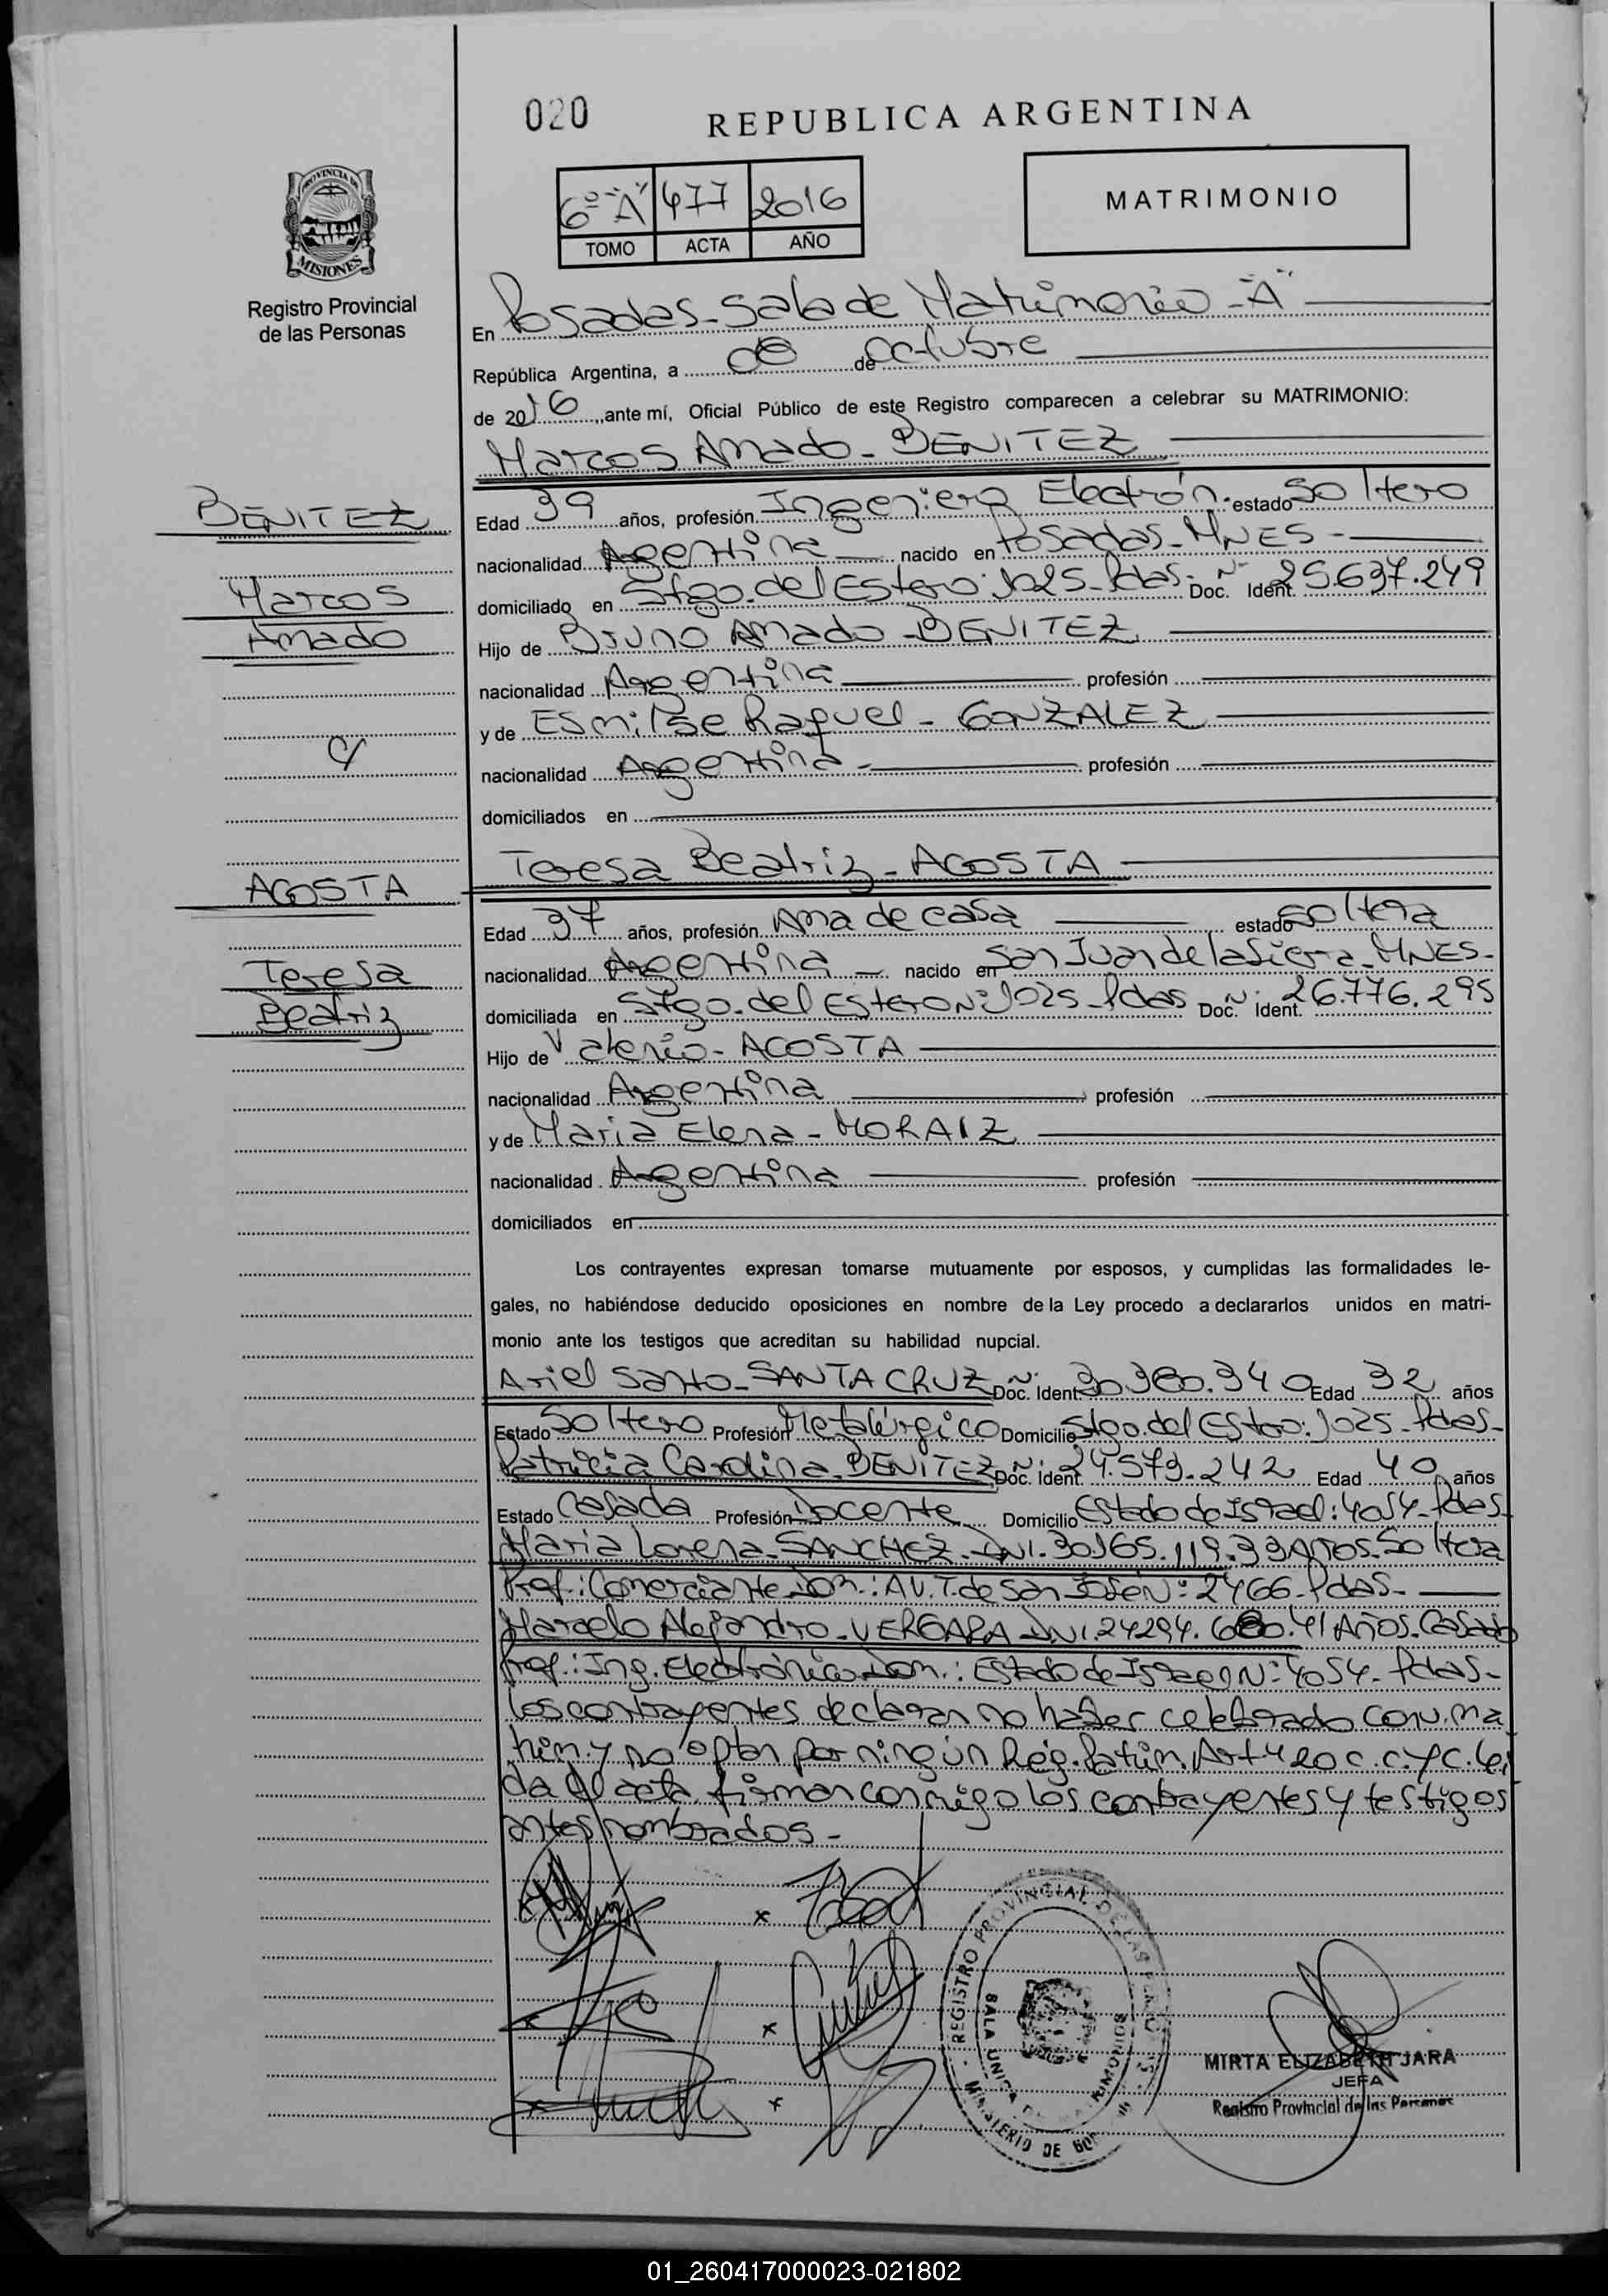 020
REPUBLICA ARGENTINA
6º "A" 477 2016
TOMO ACTA AÑO
MATRIMONIO
PROVINCIA DE
MISIONES
Registro Provincial
de las Personas
En Posadas - Sala de Matrimonio - "A"
República Argentina, a 08 de Octubre
de 2016, ante mí, Oficial Público de este Registro comparecen a celebrar su MATRIMONIO:
Marcos Amado - BENITEZ
BENITEZ
Marcos
Amado
Edad 39 años, profesión Ingeniero Electrón. estado Soltero
nacionalidad Argentina nacido en Posadas - MNES -
domiciliado en Stgo. del Estero: 1025 - Pdas - Doc. Nº Ident. 25.637.249
Hijo de Bruno Amado - BENITEZ
nacionalidad Argentina profesión
y de Esmilse Raquel - GONZALEZ
y
nacionalidad Argentina - profesión
domiciliados en
Teresa Beatriz - ACOSTA
ACOSTA
Teresa
Beatriz
Edad 37 años, profesión Ama de casa estado Soltera
nacionalidad Argentina nacido en San Juan de la Sierra - MNES -
domiciliada en Stgo. del Estero Nº: 1025 - Pdas Doc. Nº Ident. 26.776.295
Hijo de Valerio - ACOSTA
nacionalidad Argentina profesión
y de Maria Elena - MORAIZ
nacionalidad Argentina profesión
domiciliados en
Los contrayentes expresan tomarse mutuamente por esposos, y cumplidas las formalidades le-
gales, no habiéndose deducido oposiciones en nombre de la Ley procedo a declararlos unidos en matri-
monio ante los testigos que acreditan su habilidad nupcial.
Ariel Santo - SANTA CRUZ Doc. Nº Ident 30.360.340 Edad 32 años
Estado Soltero Profesión Metalúrgico Domicilio Stgo. del Estero: 1025 - Pdas -
Patricia Carolina - BENITEZ Doc. Nº Ident. 24.573.242 Edad 40 años
Estado Casada Profesión Docente Domicilio Estado de Israel: 4054 - Pdas -
Maria Lorena - SANCHEZ - DNI. 30.165.119. 33 Años. Soltera
Prof.: Comerciante Dom.: AV. T. de San José Nº: 2466 - Pdas -
Marcelo Alejandro - VERGARA DNI. 24.294.680. 41 Años. Casado
Prof.: Ing. Electrónico Dom.: Estado de Israel Nº: 4054 - Pdas -
los contrayentes declaran no haber celebrado conv. ma
trim. y no optan por ningún Rég. Patrim. Art 420 c. c. y c. Leí
da el acta, firman conmigo los contrayentes y testigos
antes nombrados -
x
x
REGISTRO PROVINCIAL DE LAS
SALA UNICA
MINISTERIO DE
MIRTA ELIZABETH JARA
JEFA
Registro Provincial de las Personas
01_260417000023-021802